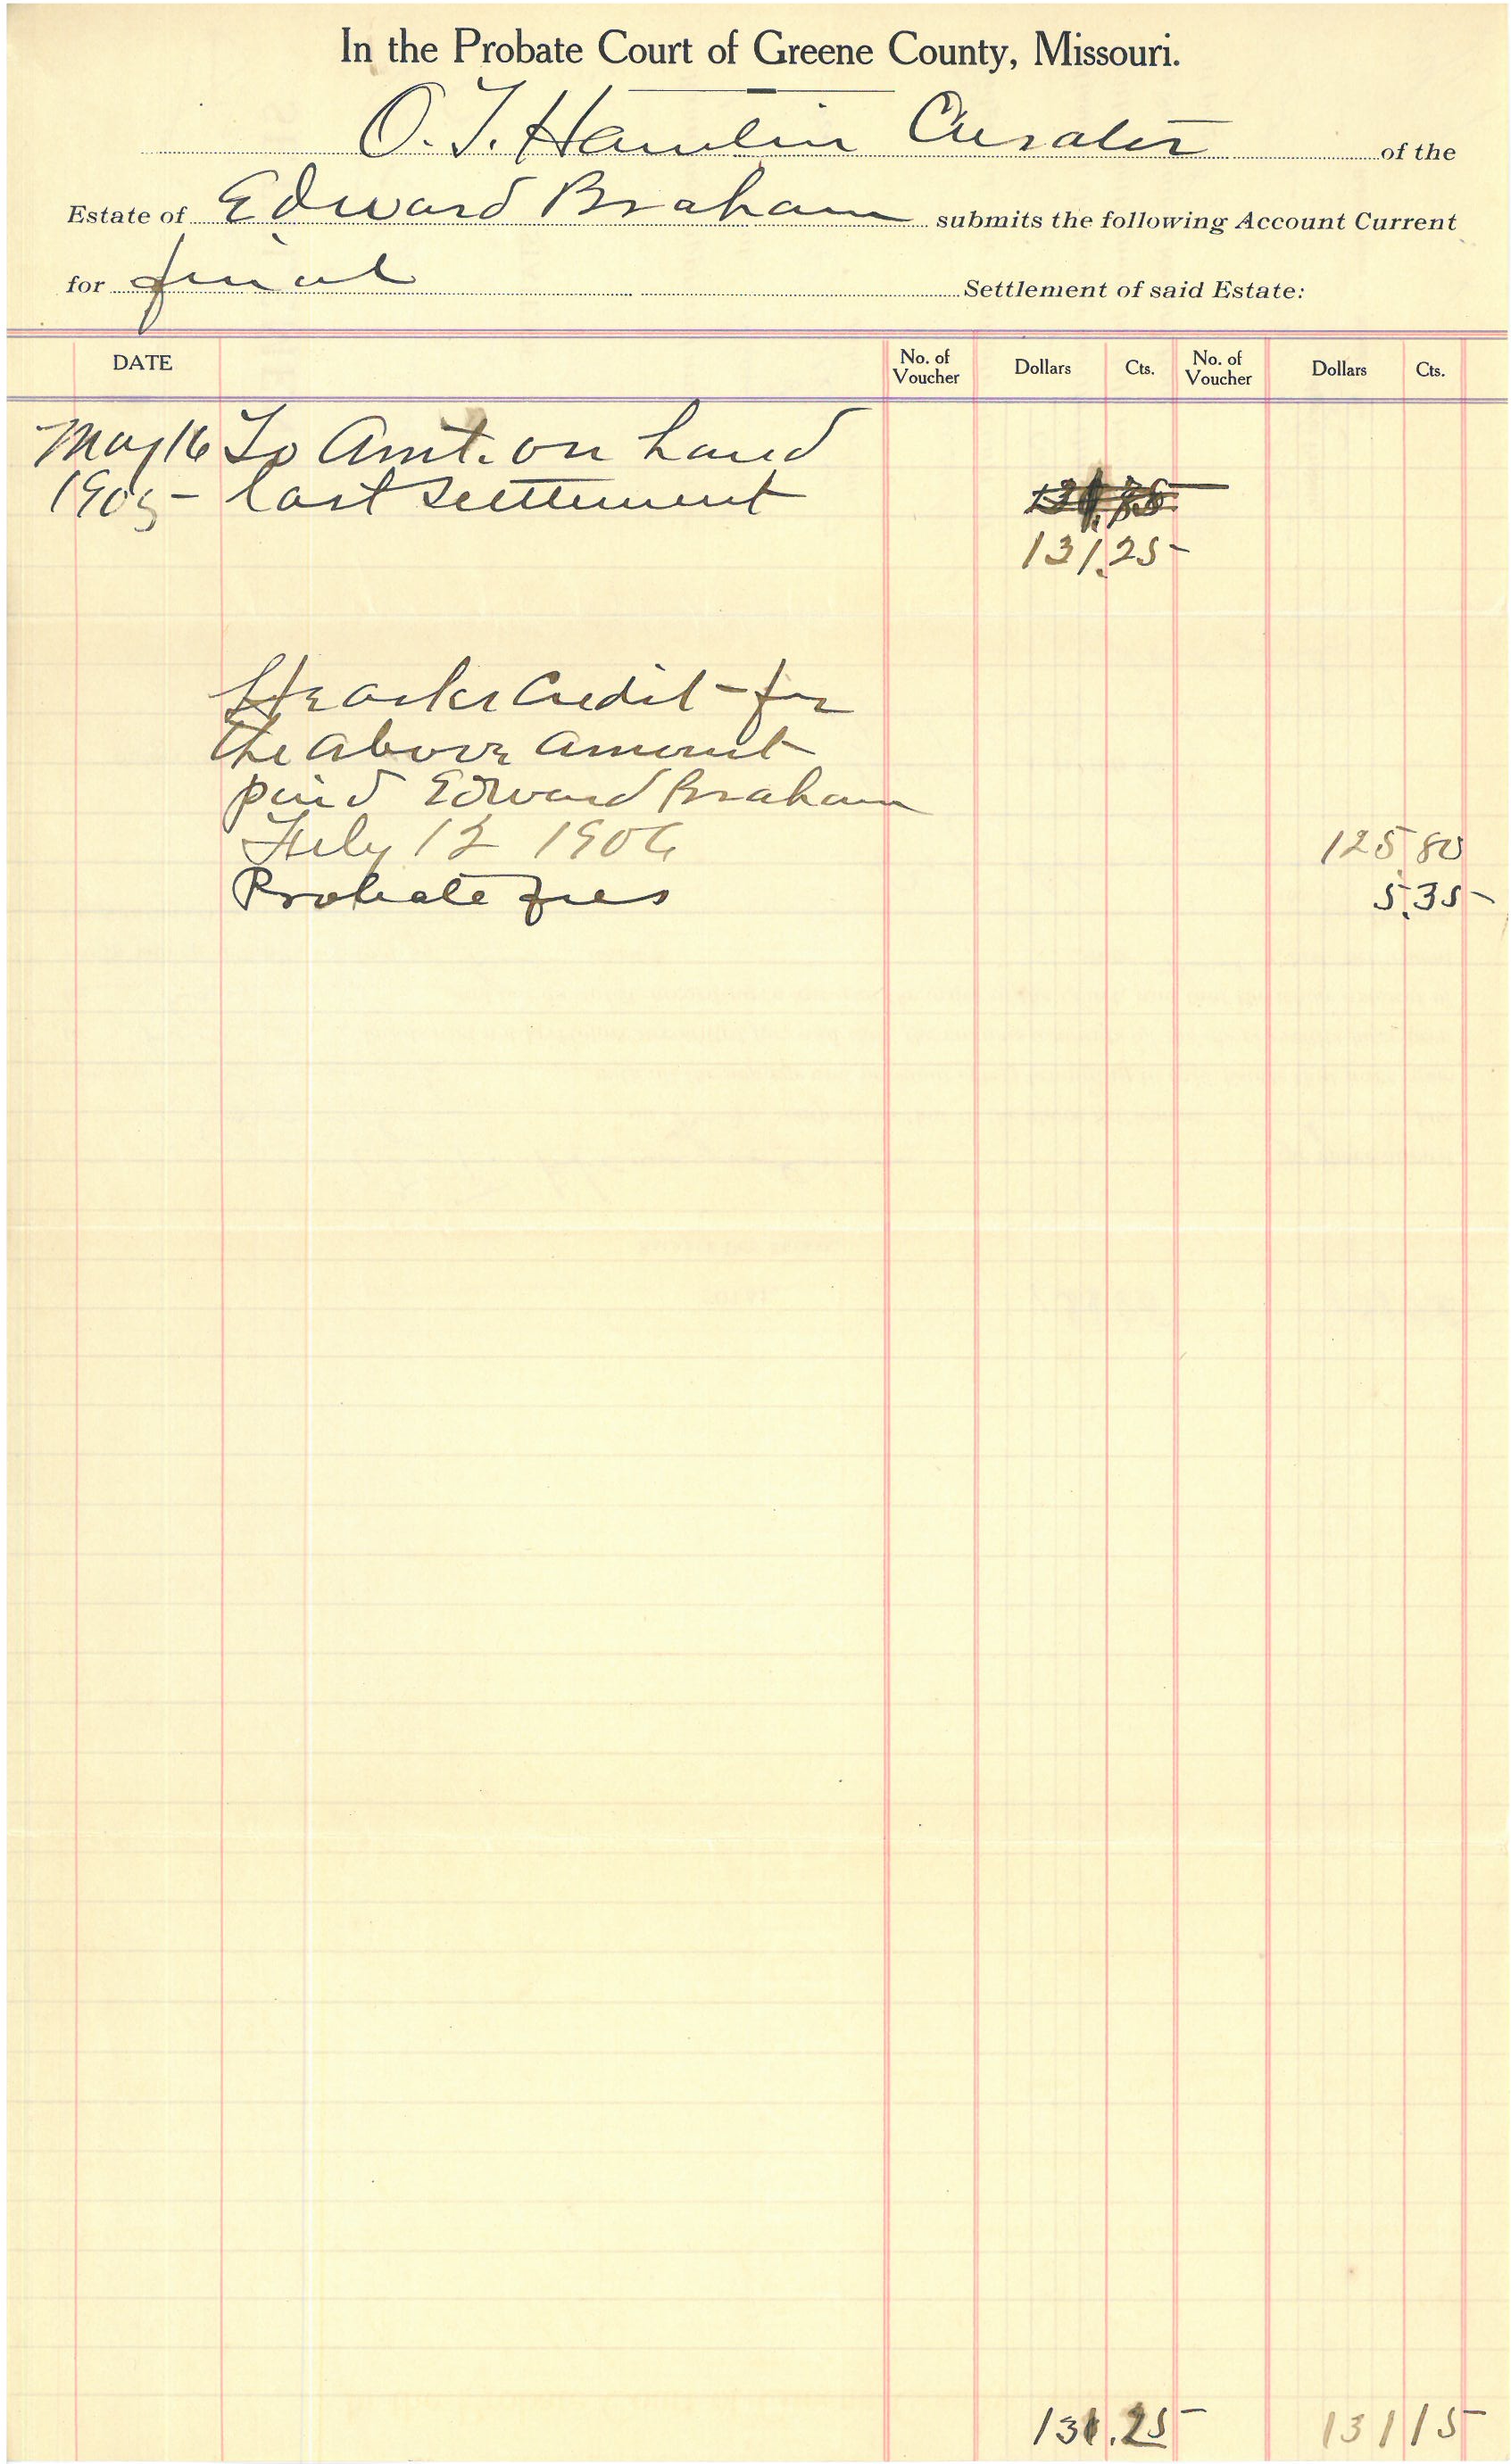 In the Probate Court of Greene County, Missouri.
O. T. Hamlin Curator of the
Estate of Edward Braham submits the following Account Current
for final Settlement of said Estate:
DATE No. of Voucher Dollars Cts. No. of Voucher Dollars Cts.
May 16 To Amt. on hand
1905 - last settlement
131.25
He asks Credit - for
the above amount
paid Edward Braham
July 12 1906 125 80
Probate fees 5.35
131.25 131 15